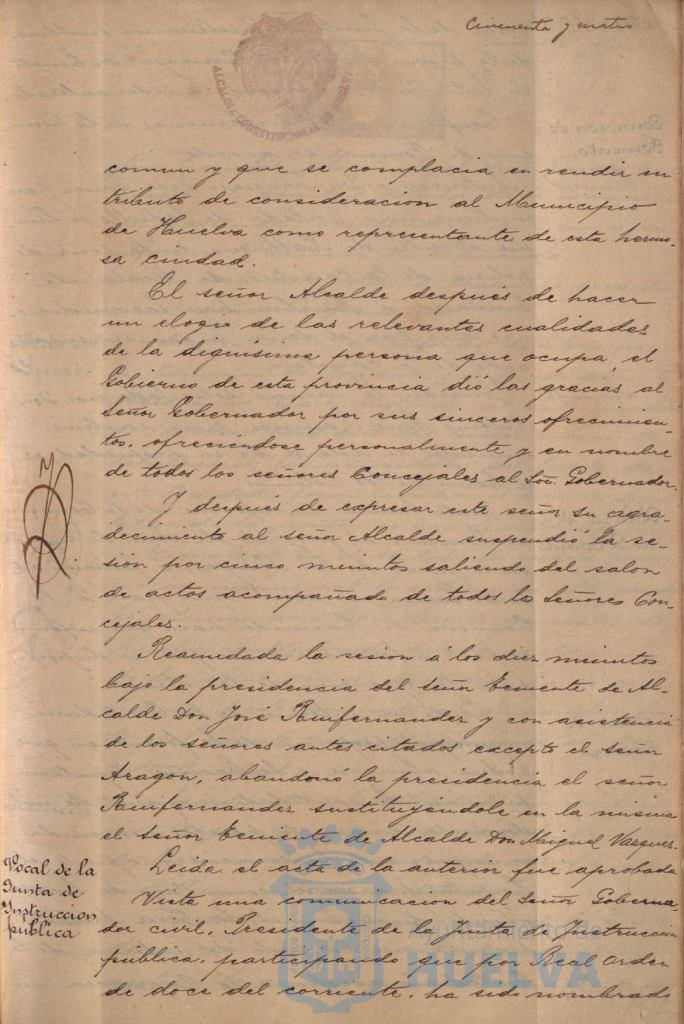 Cincuenta y cuatro
ALCALDIA CONSTITUCIONAL DE HUELVA
comun y que se complacia en rendir un
tributo de consideracion al Municipio
de Huelva como representante de esta hermo-
sa ciudad.
El señor Alcalde después de hacer
un elogio de las relevantes cualidades
de la dignísima persona que ocupa el
Gobierno de esta provincia dió las gracias al
Señor Gobernador por sus sinceros ofrecimien-
tos, ofreciéndose personalmente y en nombre
de todos los señores Concejales al Sor. Gobernador.
Y después de expresar este señor su agra-
decimiento al señor Alcalde suspendió la se-
sión por cinco minutos saliendo del salon
de actos acompañado de todos los Señores Con-
cejales.
Reanudada la sesion á los diez minutos
bajo la presidencia del señor Teniente de Al-
calde Don José Ruifernandez y con asistencia
de los señores antes citados excepto el señor
Aragon, abandonó la presidencia el señor
Ruifernandez sustituyéndole en la misma
el señor Teniente de Alcalde Don Miguel Vazquez.
Leida el acta de la anterior fue aprobada
Vocal de la
Junta de
Instruccion
pública
Vista una comunicacion del Señor Goberna-
dor civil, Presidente de la Junta de Instruccion
pública, participando que por Real Orden
de doce del corriente, ha sido nombrado
Ayuntamiento de
HUELVA